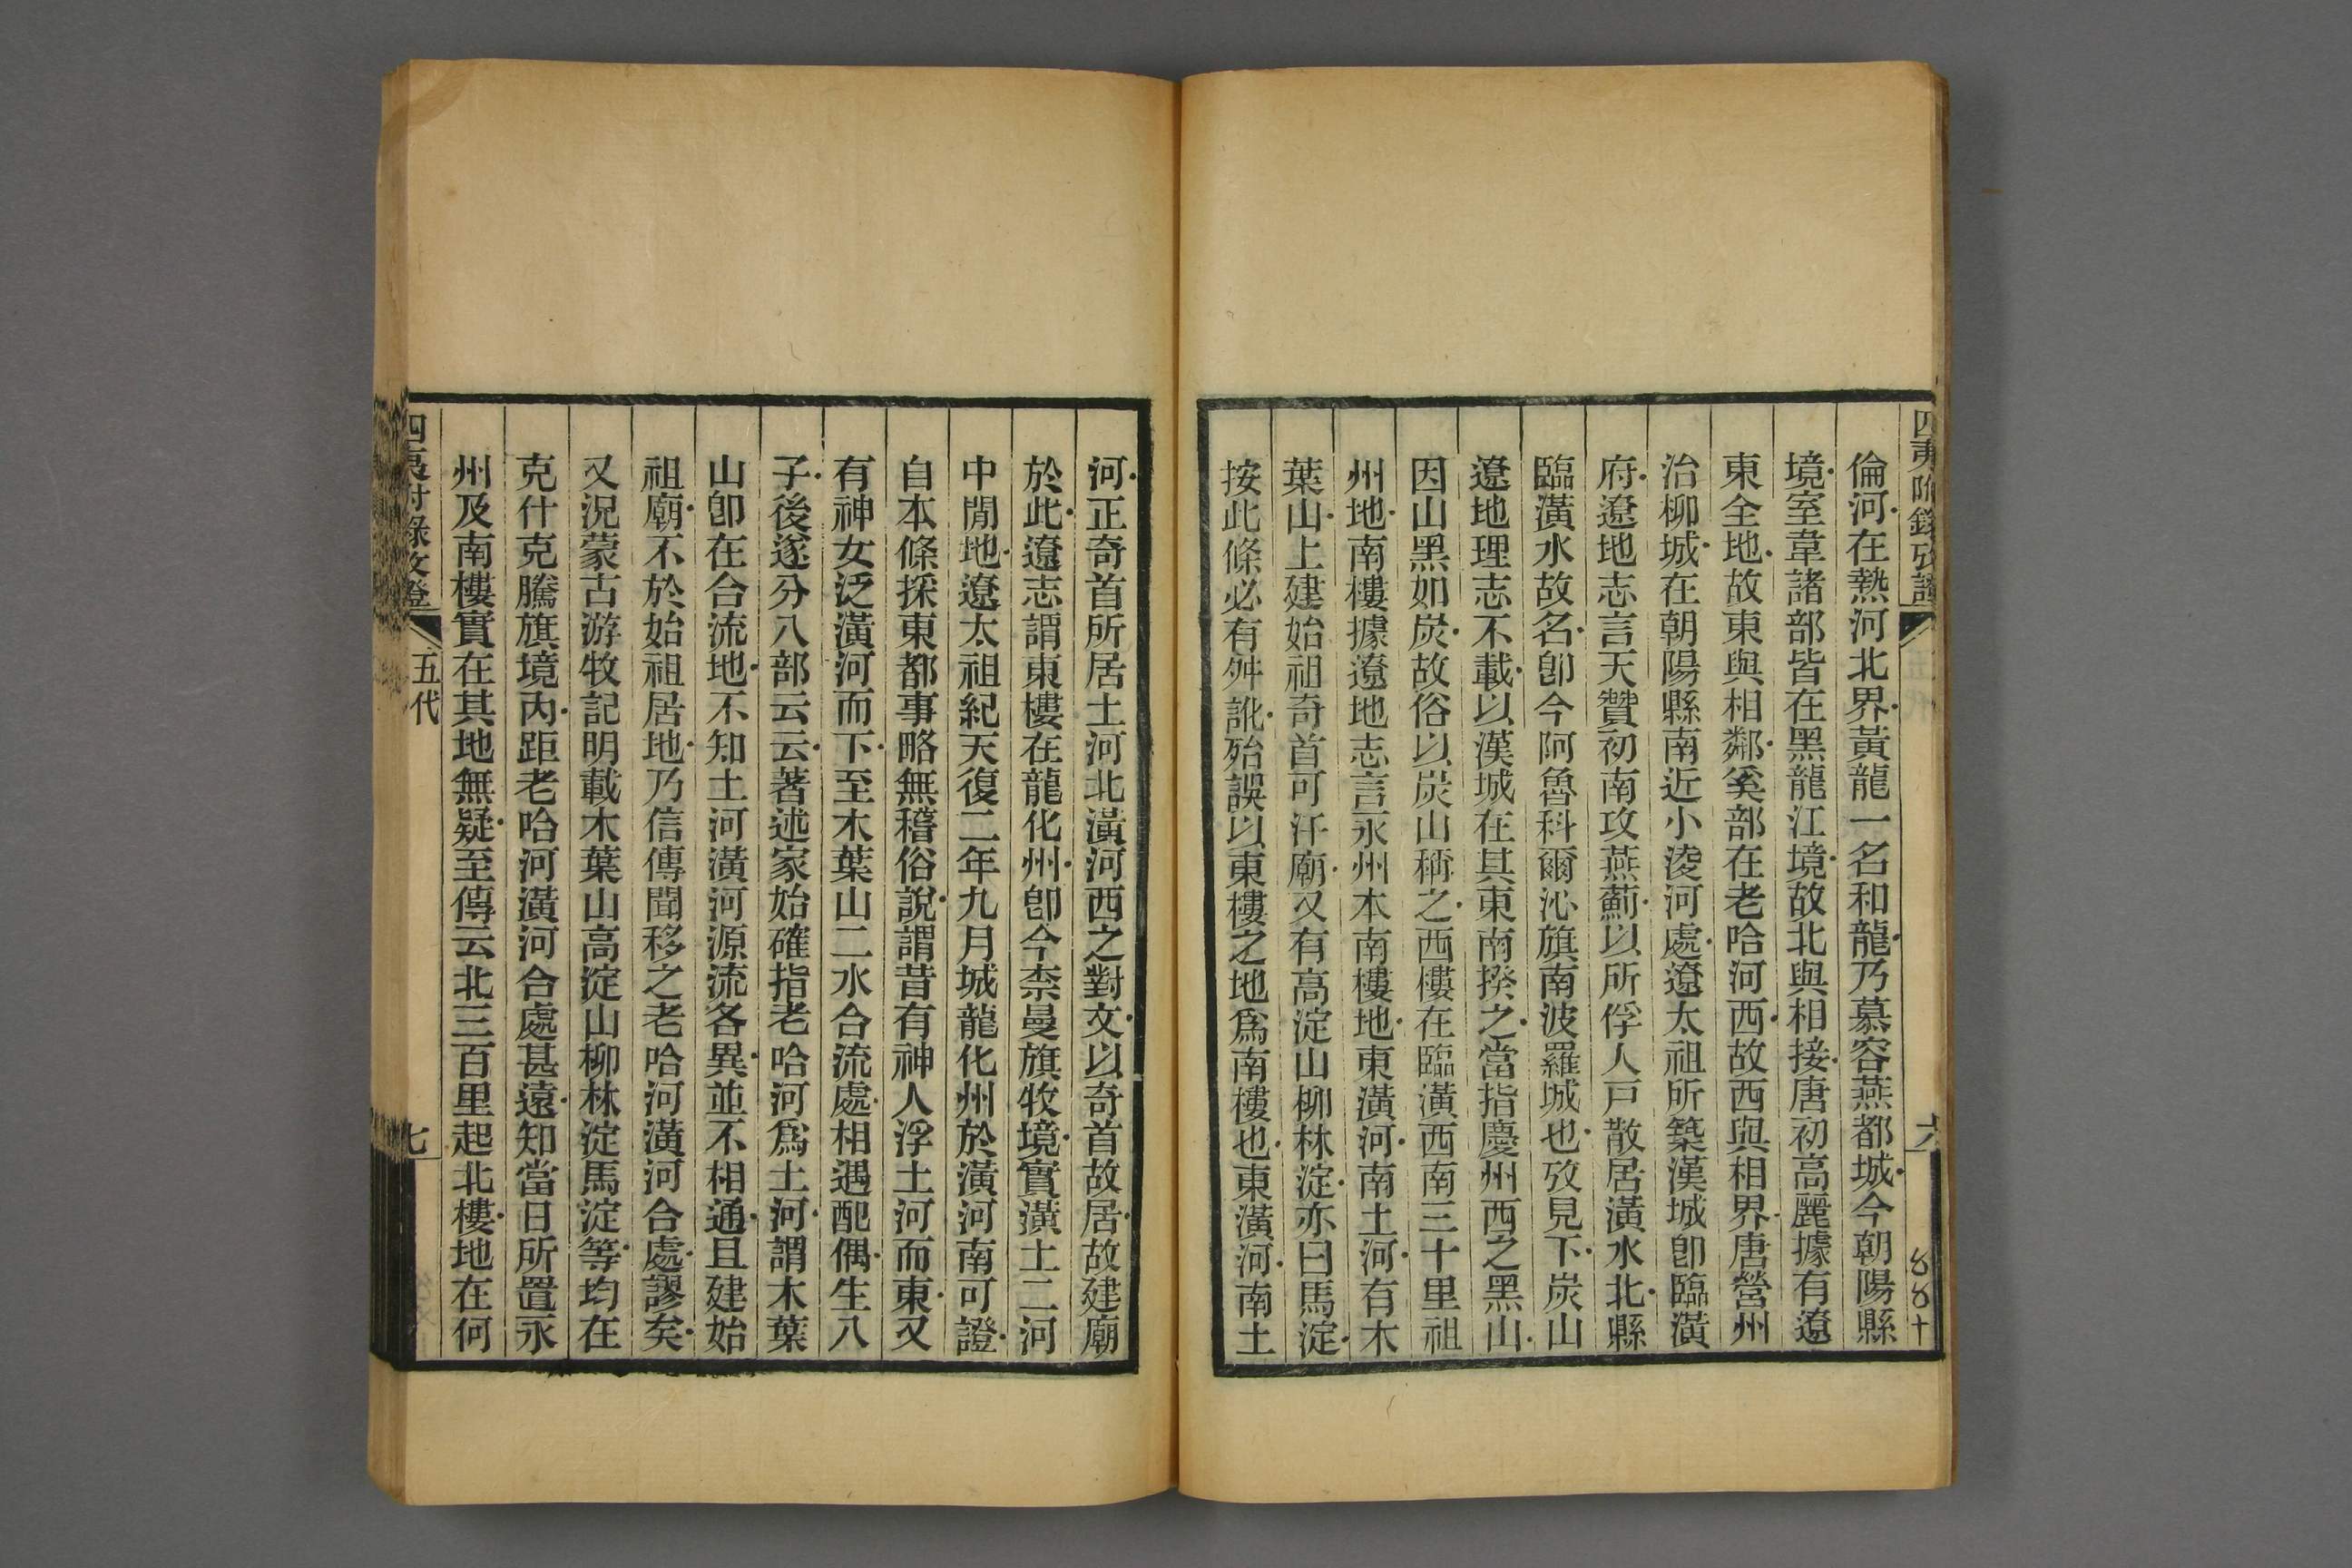 四夷附錄攷證
六
倫河在熱河北界黃龍一名和龍乃慕容燕都城今朝陽縣
境室韋諸部皆在黑龍江境故北與相接唐初高麗據有遼
東全地故東與相鄰奚部在老哈河西故西與相界唐營州
治柳城在朝陽縣南近小淩河處遼太祖所築漢城卽臨潢
府遼地志言天贊初南攻燕薊以所俘人戸散居潢水北縣
臨潢水故名卽今阿魯科爾沁旗南波羅城也攷見下炭山
遼地理志不載以漢城在其東南揆之當指慶州西之黑山
因山黑如炭故俗以炭山稱之西樓在臨潢西南三十里祖
州地南樓據遼地志言永州本南樓地東潢河南土河有木
葉山上建始祖奇首可汗廟又有高淀山柳林淀亦曰馬淀
按此條必有舛訛殆誤以東樓之地爲南樓也東潢河南土
河正奇首所居土河北潢河西之對文以奇首故居故建廟
於此遼志謂東樓在龍化州卽今柰曼旗牧境實潢土二河
中閒地遼太祖紀天復二年九月城龍化州於潢河南可證
自本條採東都事略無稽俗說謂昔有神人浮土河而東又
有神女泛潢河而下至木葉山二水合流處相遇配偶生八
子後遂分八部云云著述家始確指老哈河爲土河謂木葉
山卽在合流地不知土河潢河源流各異並不相通且建始
祖廟不於始祖居地乃信傳聞移之老哈河潢河合處謬矣
又況蒙古游牧記明載木葉山高淀山柳林淀馬淀等均在
克什克騰旗境內距老哈河潢河合處甚遠知當日所置永
州及南樓實在其地無疑至傳云北三百里起北樓地在何
四夷附錄攷證
五代
七